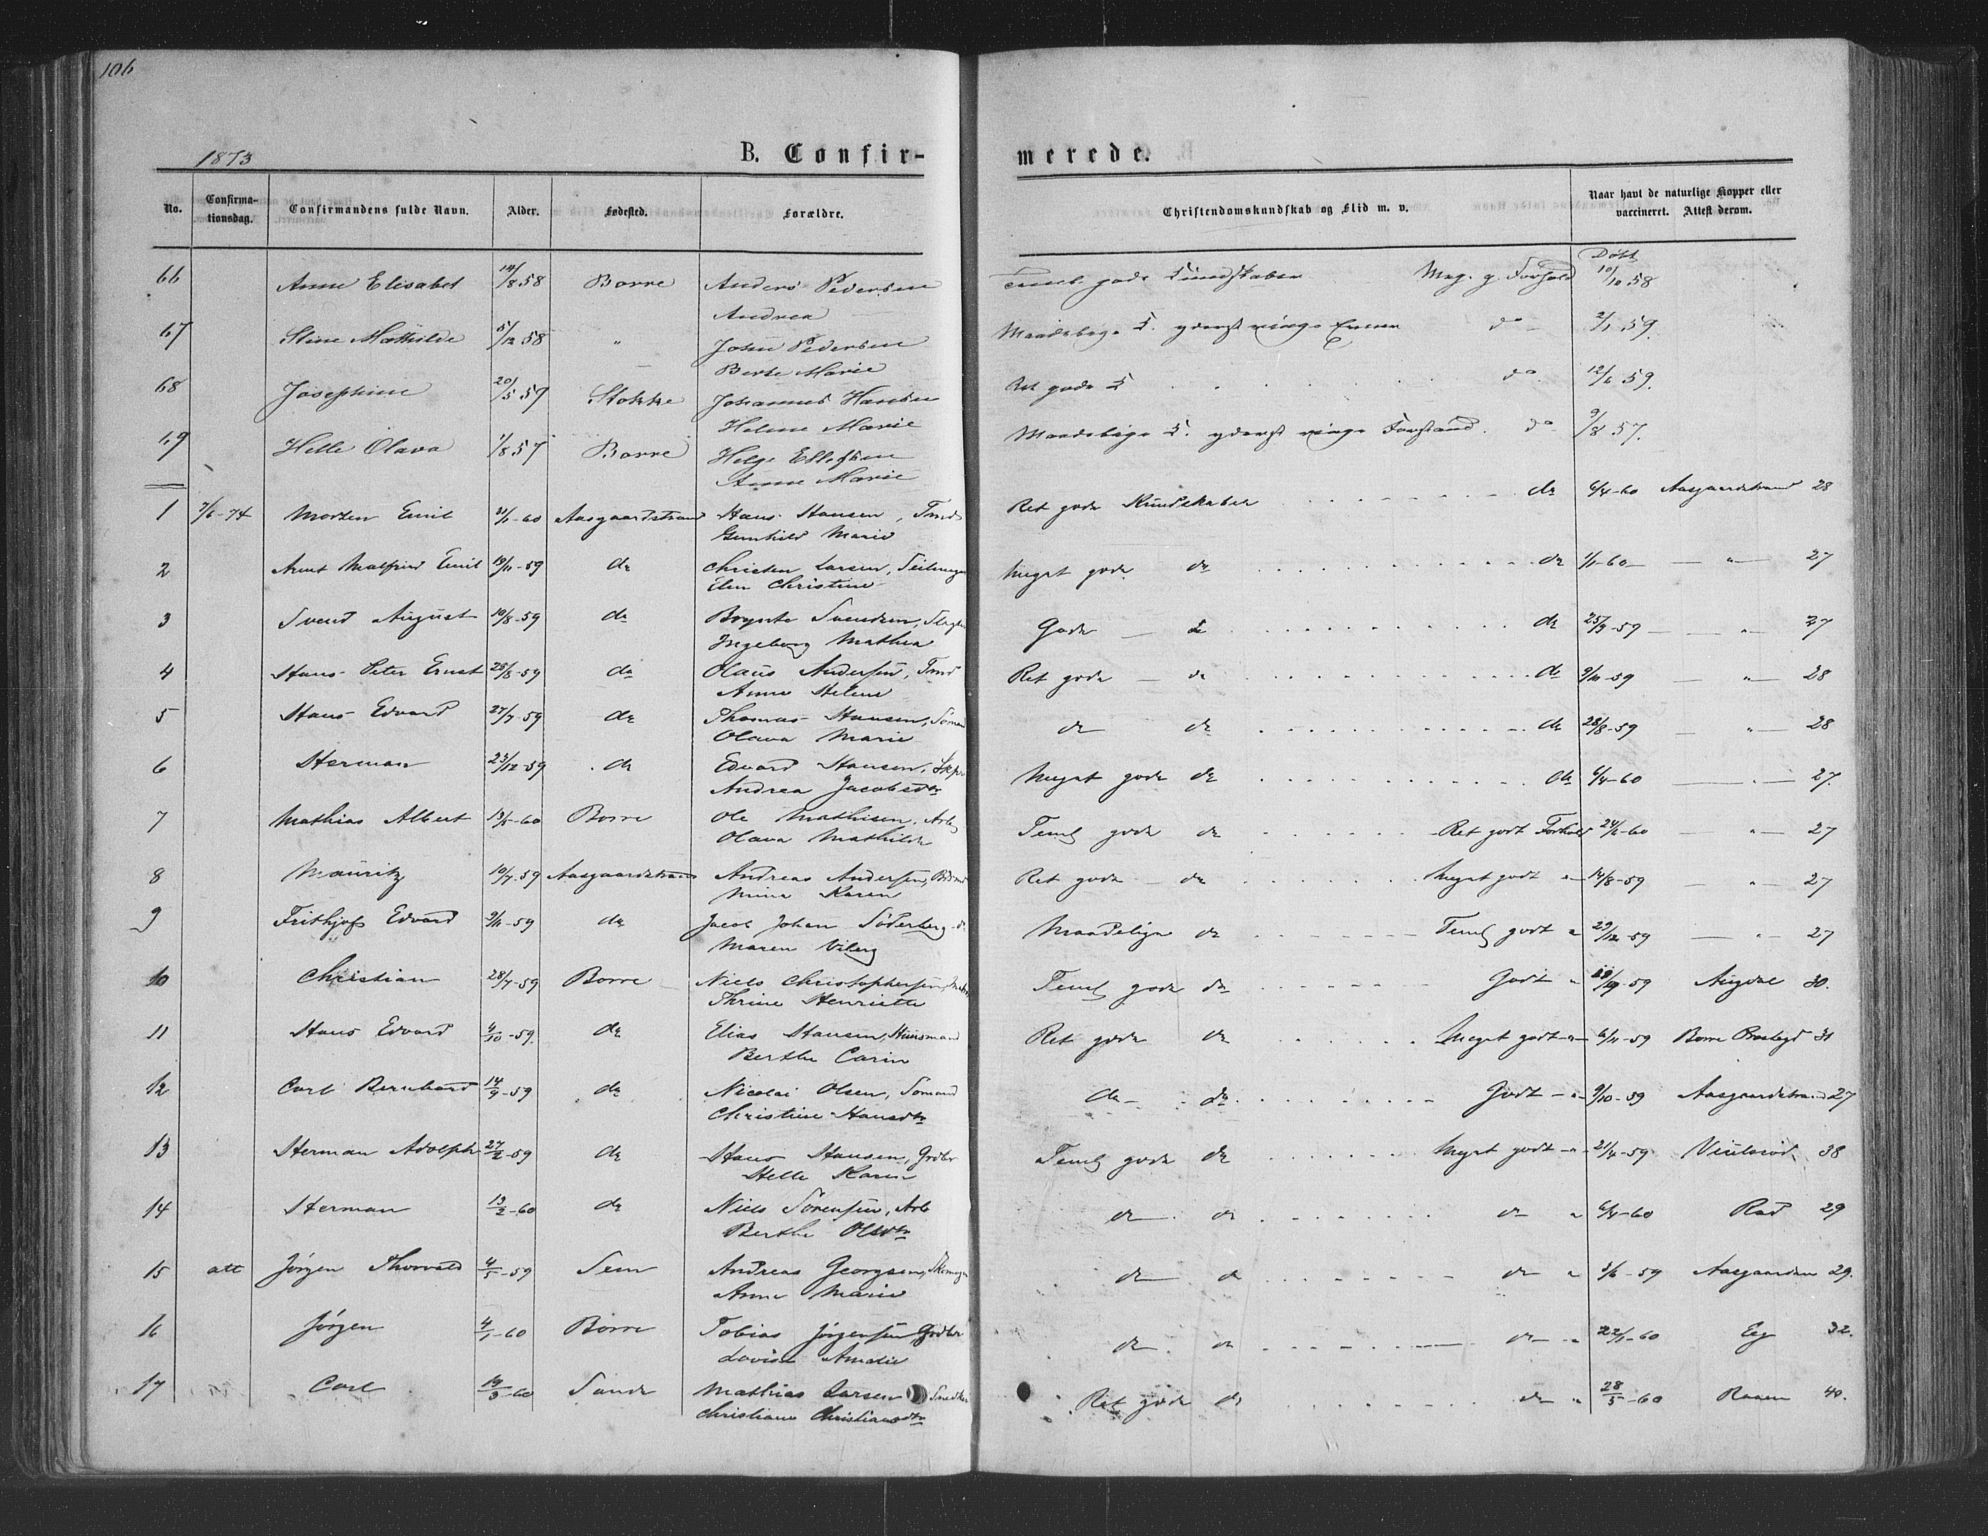 106
1873
B. Confir-
merede.
No. Confirma-tionsdag. Confirmandens fulde Navn. Alder. Fødested. Forældre. Christendomskundskab og Flid m. v. Naar havt de naturlige Kopper eller vaccineret. Attest derom.
66 Anne Elisabet 14/8 58 Borre Anders Pedersen Temel. gode Kundskaber Meg. g. Forhold 10/10 58
Andrea
67 Stine Mathilde 5/12 58 " Johan Pedersen 2/1 59.
Berte Marie
68 Josephine 20/5 59 Stokke Johannes Hansen Ret gode K do. 12/6 59.
Helene Marie
69 Helle Olava 1/8 57 Borre Helge Ellefsen do 9/8 57.
Anne Marie
1 7/6-74 Morten Emil 31/1-60 Aasgaardstrand Hans Hansen, Tmd Ret gode Kundskaber do 6/4-60 Aasgaardstrand 28
Gunhild Marie
2 Arnt Malfried Emil 19/11-59 do Christen Larsen, Meget gode do do 1/1-60 — " — 27
Elen Christine
3 Svend August 10/8-59 do Svendsen, Gode — do 25/9-59 — " — 27
Ingeborg Mathea
4 Hans Peter Ernst 25/8-59 do Olaus Andersen, Tmd Ret gode — do do 9/11-59 — " — 28
Anne Helene
5 Hans Edvard 27/7-59 do Thomas Hansen, Sømand do do do 28/8-59 — " — 28
Olava Marie
6 Herman 23/12-59 do Edvard Hansen, Skpr Meget gode do do 6/4-60 — " — 27.
Andrea Jacobsdtr
7 Mathias Albert 13/5-60 Borre Ole Mathisen, Arb Temel gode do Ret godt Forhold 24/6-60 — " — 27
Olava Mathilde
8 Mauritz 10/7-59 Aasgaardstrand Andreas Andersen, Ret gode — do Meget godt " 14/8-59 — " — 27
Mina Karen
9 Frithjof Edvard 9/11-59 do Jacob Johan Söderberg Maadelige do Temel godt " 29/12-59 — " — 27
Maren Viberg
10 Christian 28/7-59 Borre Niels Christophersen, Temel gode do Godt " 59 30.
Thrine Henriette
11 Hans Edvard 4/10-59. do Elias Hansen, Huusmand Ret gode do Meget godt " 6/11-59 Borre Prestegd 31
Berthe Carin
12 Carl Bernhard 14/9-59 do Nicolai Olsen, Sømand do do Godt — " 9/10-59 Aasgaardstrand 27
Christine Hansdtr
13 Herman Adolph 27/2-59 do Hans Hansen, Grdbr Temel gode do Meget godt " 21/4-59 38
Helle Karin
14 Herman 13/2-60 do Niels Sørensen, Arb do do do " 6/4-60 Rød 29
Berthe Olsdtr
15 att Jørgen Thorvald 4/5-59 Sem Andreas Georgsen, do do do " 3/6-59 Aasgaarden 29.
Anne Marie
16 Jørgen 4/1-60 Borre Tobias Jørgensen, Grdbr do do do " 22/1-60 Eeg 32.
Lovise Amalie
17 Carl 19/3-60 Sande Mathias Larsen Snedker Ret gode do do " 28/5-60 Raaen 40.
Christiane Christiansdtr